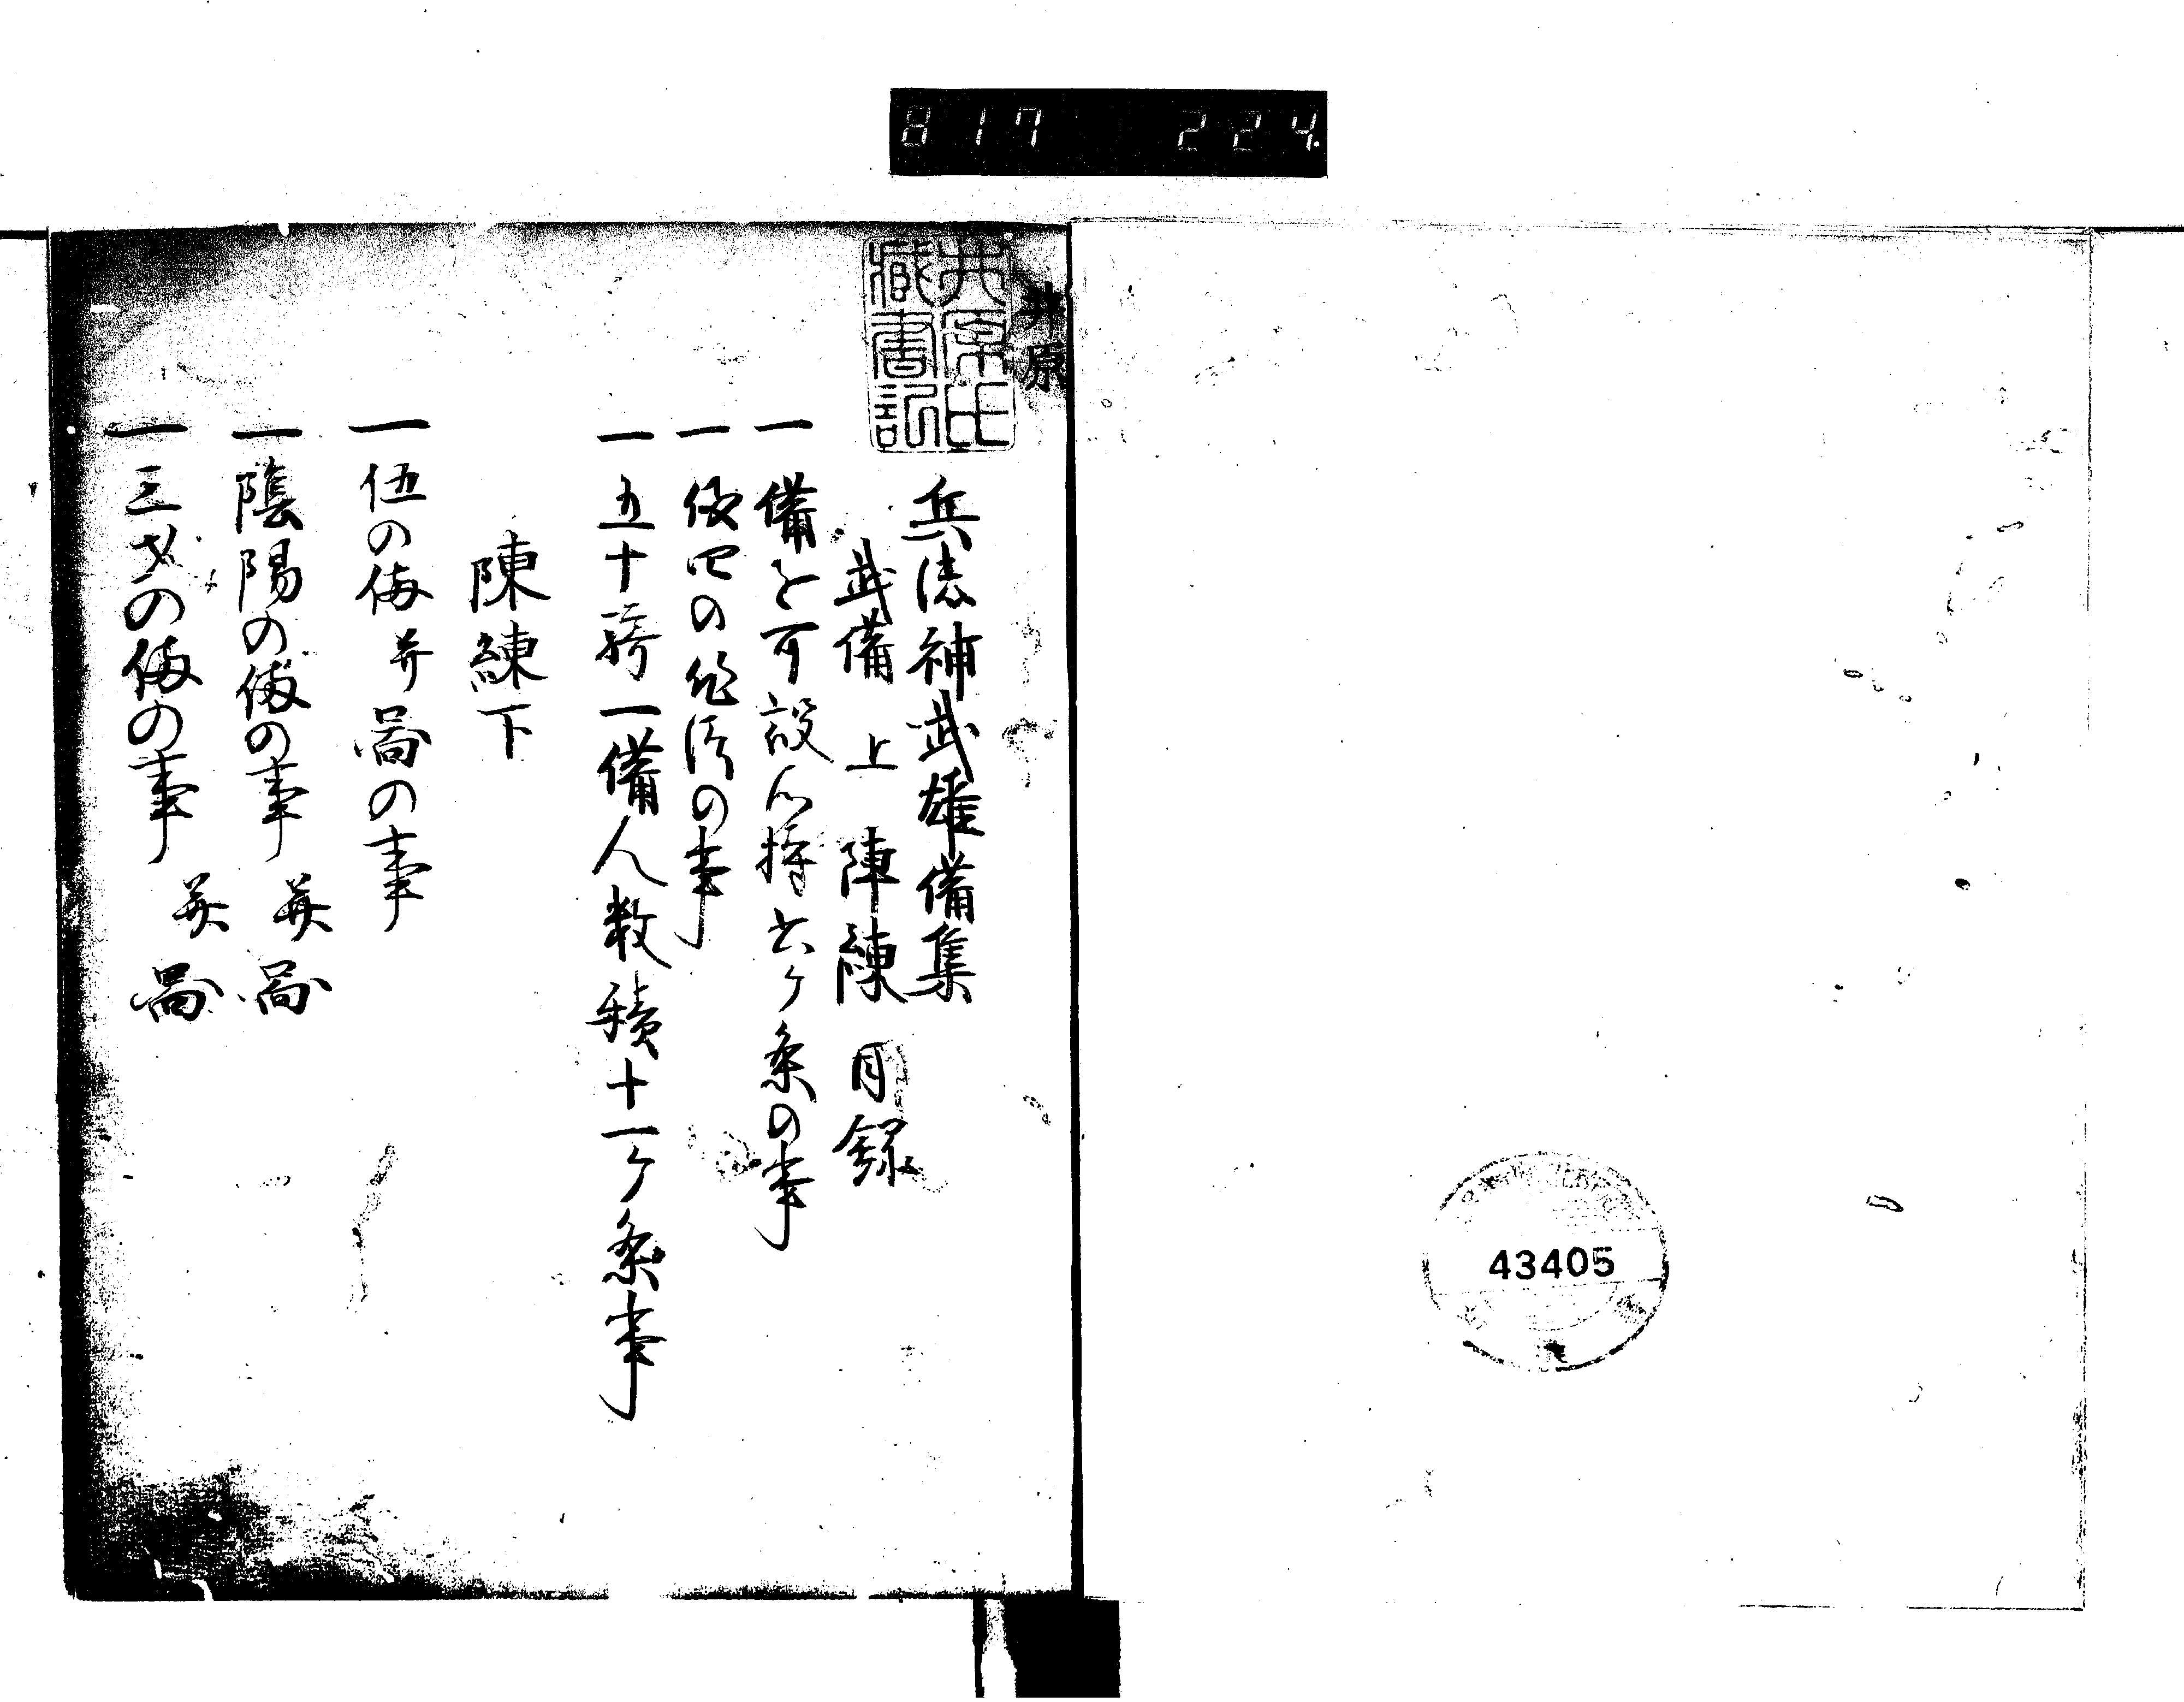 817 224
井原
井原氏
蔵書記
兵法神武雄備集
武備上 陣練目録
一 備を可設心持六ケ条の事
一 備四の作法の事
一 五十騎一備人数積十一ケ条事
陳練下
一 伍の備并啚の事
一 陰陽の備の事 并啚
一 三才の備の事 并啚
43405